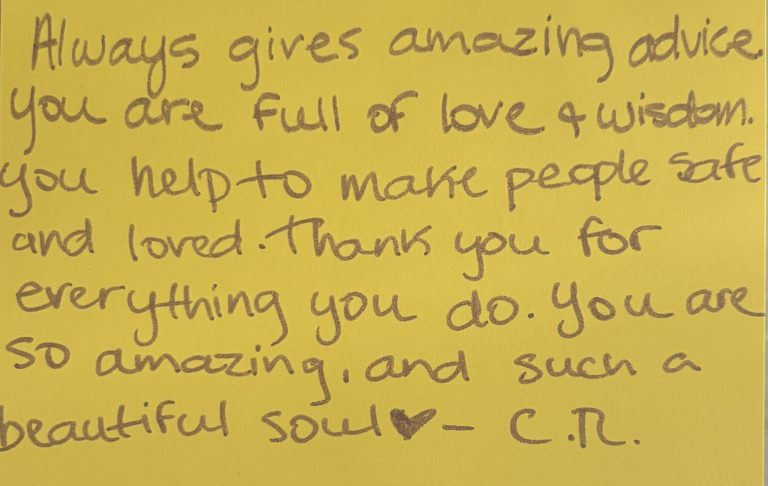 Always gives amazing advice.
you are full of love & wisdom.
you help to make people safe
and loved. Thank you for
everything you do. You are
so amazing, and such a
beautiful soul♥ - C.R.